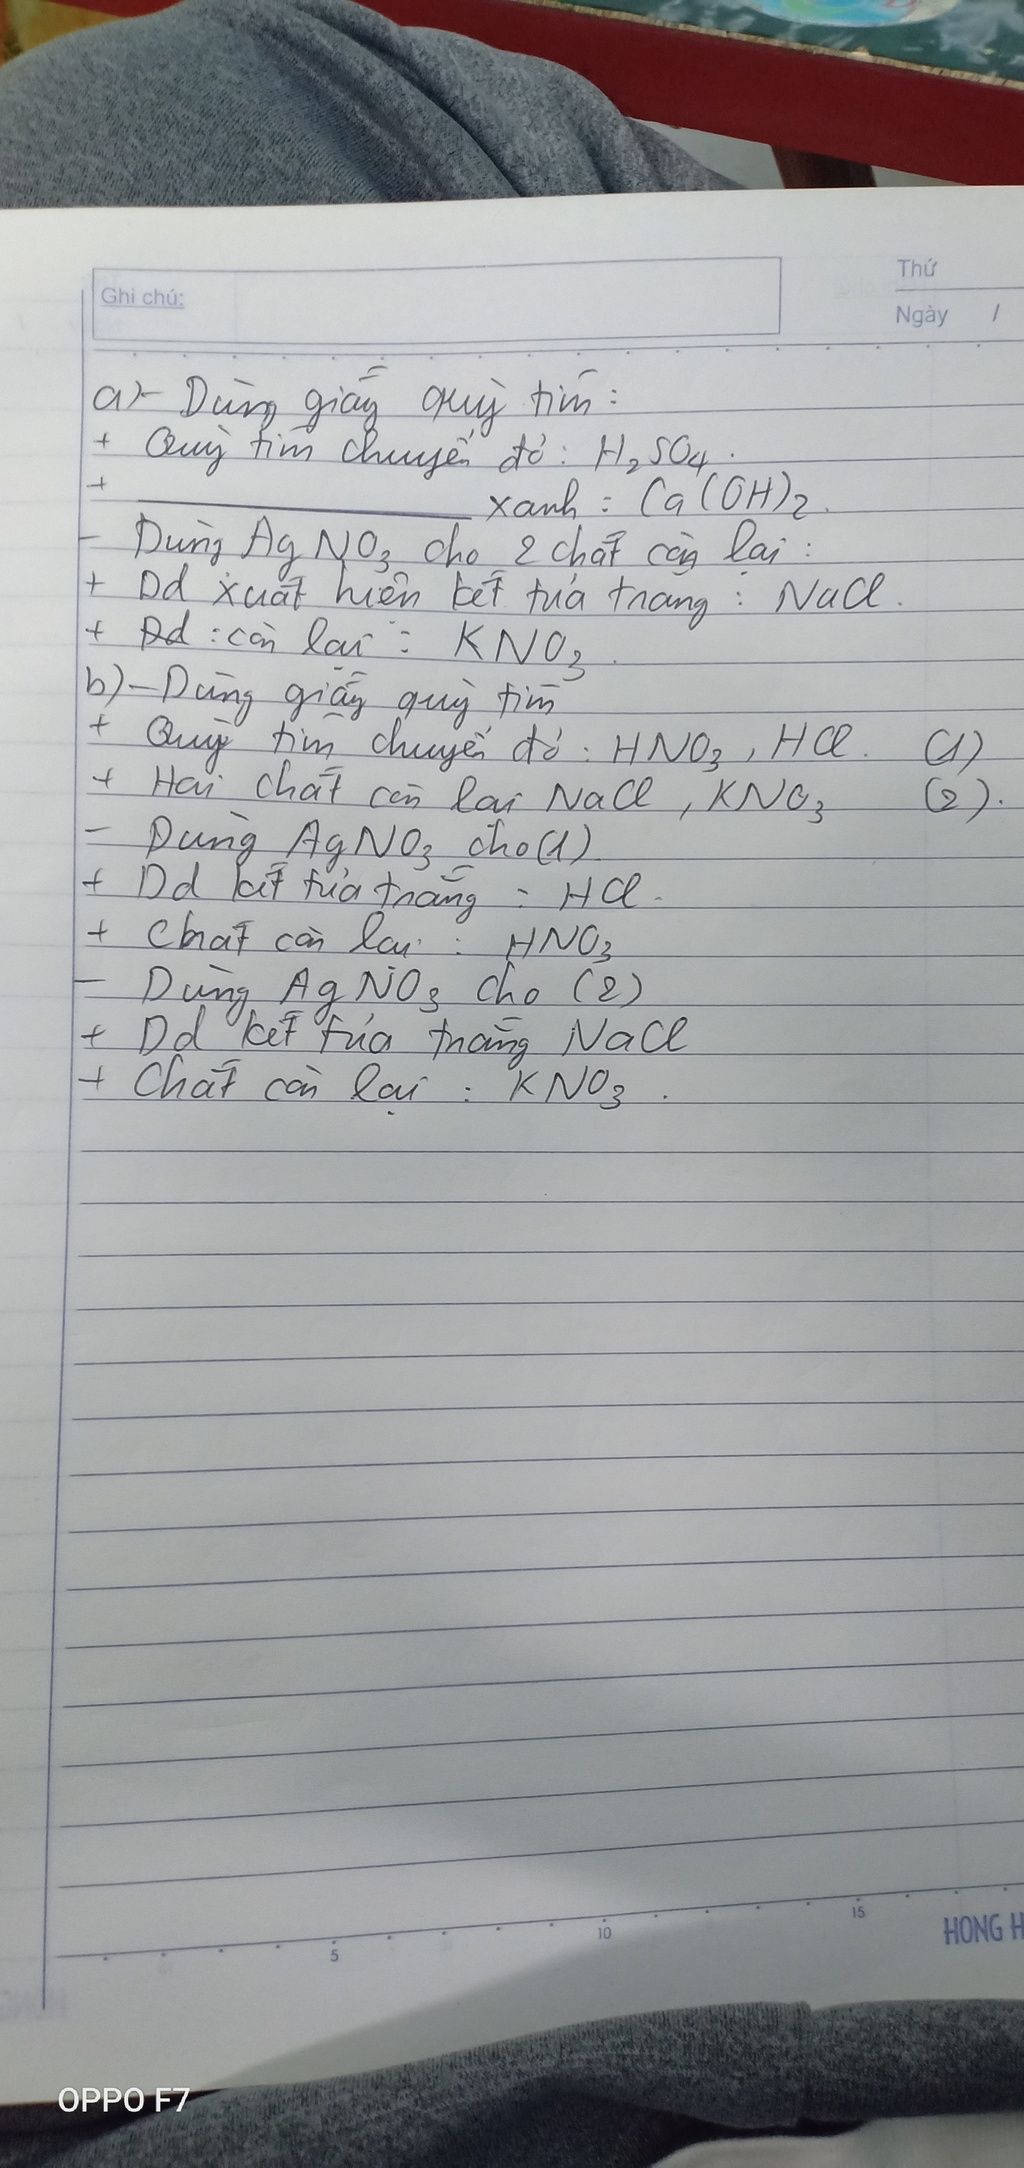 Ghi chú:
Thứ
Ngày /
a)- Dùng giấy quỳ tím:
+ Quỳ tím chuyển đỏ: H2SO4.
+ ____________ xanh: Ca(OH)2.
- Dùng AgNO3 cho 2 chất còn lại:
+ Dd xuất hiện kết tủa trắng: NaCl.
+ Dd: còn lại: KNO3.
b)- Dùng giấy quỳ tím
+ Quỳ tím chuyển đỏ: HNO3, HCl. (1)
+ Hai chất còn lại NaCl, KNO3 (2).
- Dùng AgNO3 cho (1)
+ Dd kết tủa trắng: HCl.
+ Chất còn lại: HNO3
- Dùng AgNO3 cho (2)
+ Dd kết tủa trắng NaCl
+ Chất còn lại: KNO3.
5 10 15
HONG H
OPPO F7